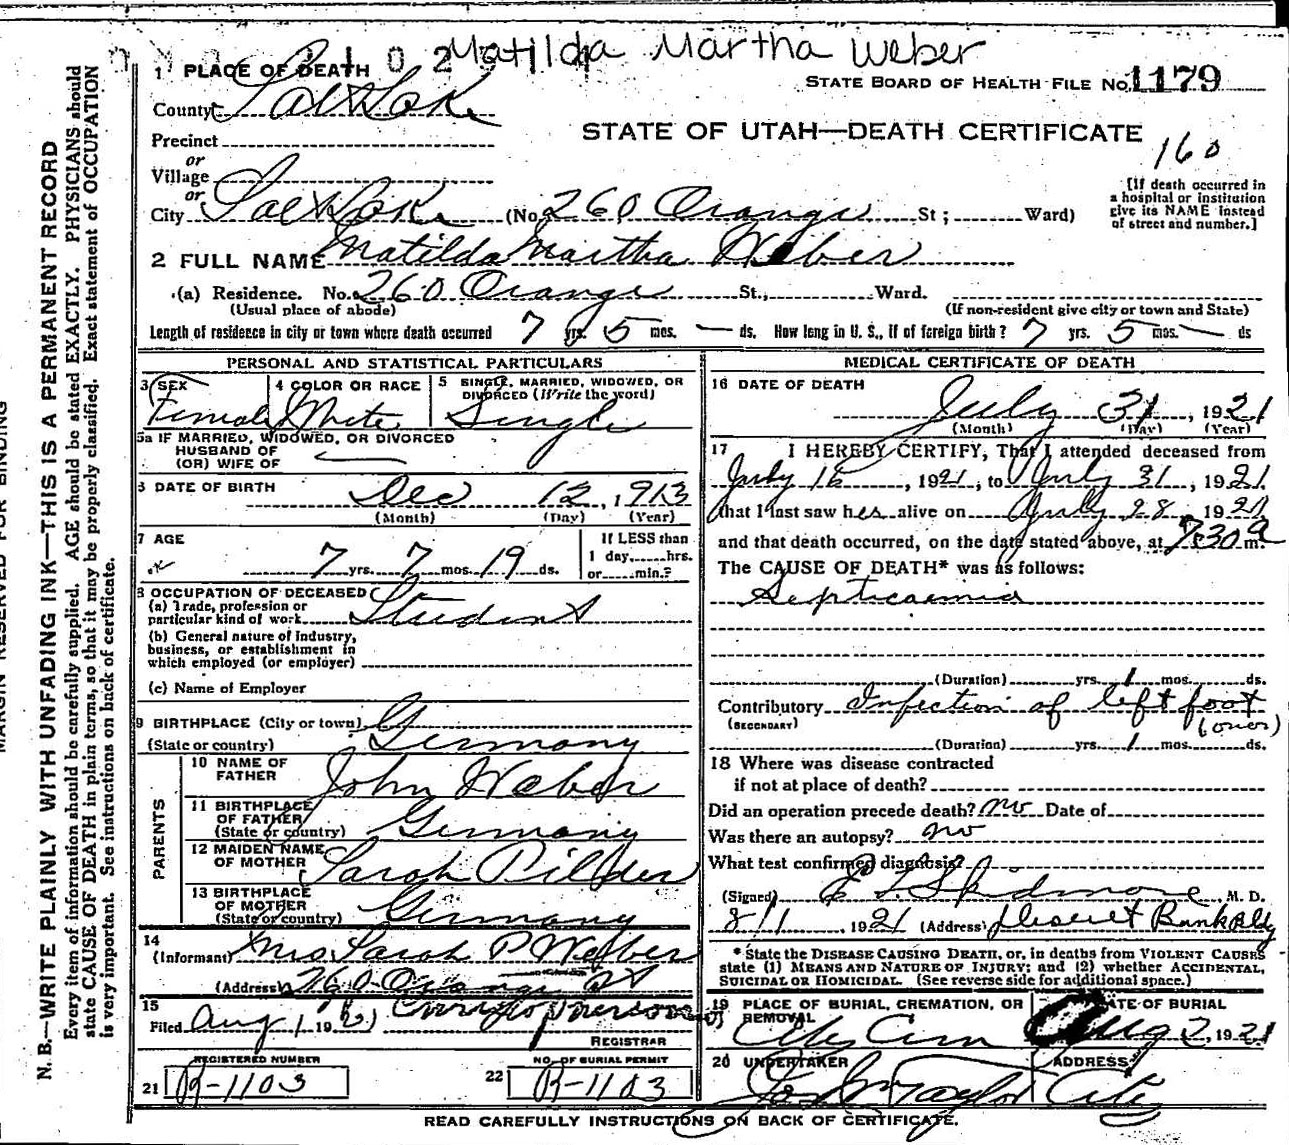 Matilda Martha Weber
1 PLACE OF DEATH
STATE BOARD OF HEALTH FILE No. 1179
County Salt Lake
STATE OF UTAH—DEATH CERTIFICATE
Precinct
160
or
Village
or
[If death occurred in
a hospital or institution
give its NAME instead
of street and number.]
City Salt Lake (No. 260 Orange St ; Ward)
2 FULL NAME Matilda Martha Weber
(a) Residence. No. 260 Orange St., Ward.
(Usual place of abode) (If non-resident give city or town and State)
Length of residence in city or town where death occurred 7 yrs. 5 mos. — ds. How long in U. S., if of foreign birth? 7 yrs. 5 mos. — ds
PERSONAL AND STATISTICAL PARTICULARS
3 SEX
Female
4 COLOR OR RACE
White
5 SINGLE, MARRIED, WIDOWED, OR
DIVORCED (Write the word)
Single
5a IF MARRIED, WIDOWED, OR DIVORCED
HUSBAND OF
(OR) WIFE OF
6 DATE OF BIRTH Dec 12, 1913
(Month) (Day) (Year)
7 AGE
7 yrs. 7 mos. 19 ds.
If LESS than
1 day,......hrs.
or......min.?
8 OCCUPATION OF DECEASED
(a) Trade, profession or
particular kind of work Student
(b) General nature of Industry,
business, or establishment in
which employed (or employer)
(c) Name of Employer
9 BIRTHPLACE (City or town)
(State or country) Germany
PARENTS
10 NAME OF
FATHER John Weber
11 BIRTHPLACE
OF FATHER
(State or country) Germany
12 MAIDEN NAME
OF MOTHER Sarah Pilder
13 BIRTHPLACE
OF MOTHER
(State or country) Germany
14
(Informant) Mrs. Sarah P Weber
(Address) 260 Orange St
15
Filed Aug 1, 1921
REGISTRAR
REGISTERED NUMBER
21 R-1103
NO. OF BURIAL PERMIT
22 R-1103
MEDICAL CERTIFICATE OF DEATH
16 DATE OF DEATH
July 31, 1921
(Month) (Day) (Year)
17 I HEREBY CERTIFY, That I attended deceased from
July 16, 1921, to July 31, 1921
that I last saw her alive on July 28 1921
and that death occurred, on the date stated above, at 7:30 a m.
The CAUSE OF DEATH* was as follows:
Septicaemia
(Duration) yrs. 1 mos. ds.
Contributory Infection of left foot
(SECONDARY)
(Duration) yrs. 1 mos. ds.
18 Where was disease contracted
if not at place of death?
Did an operation precede death? no Date of
Was there an autopsy? no
What test confirmed diagnosis?
(Signed) Skidmore, M. D.
8/1 1921 (Address) Deseret Bank Bldg
* State the DISEASE CAUSING DEATH, or, in deaths from VIOLENT CAUSES
state (1) MEANS AND NATURE OF INJURY; and (2) whether ACCIDENTAL,
SUICIDAL OR HOMICIDAL. (See reverse side for additional space.)
19 PLACE OF BURIAL, CREMATION, OR
REMOVAL
City Cem
DATE OF BURIAL
Aug 2, 1921
20 UNDERTAKER
Taylor
ADDRESS
City
READ CAREFULLY INSTRUCTIONS ON BACK OF CERTIFICATE.
MARGIN RESERVED FOR BINDING
N. B.—WRITE PLAINLY WITH UNFADING INK—THIS IS A PERMANENT RECORD
Every item of information should be carefully supplied. AGE should be stated EXACTLY. PHYSICIANS should
state CAUSE OF DEATH in plain terms, so that it may be properly classified. Exact statement of OCCUPATION
is very important. See instructions on back of certificate.